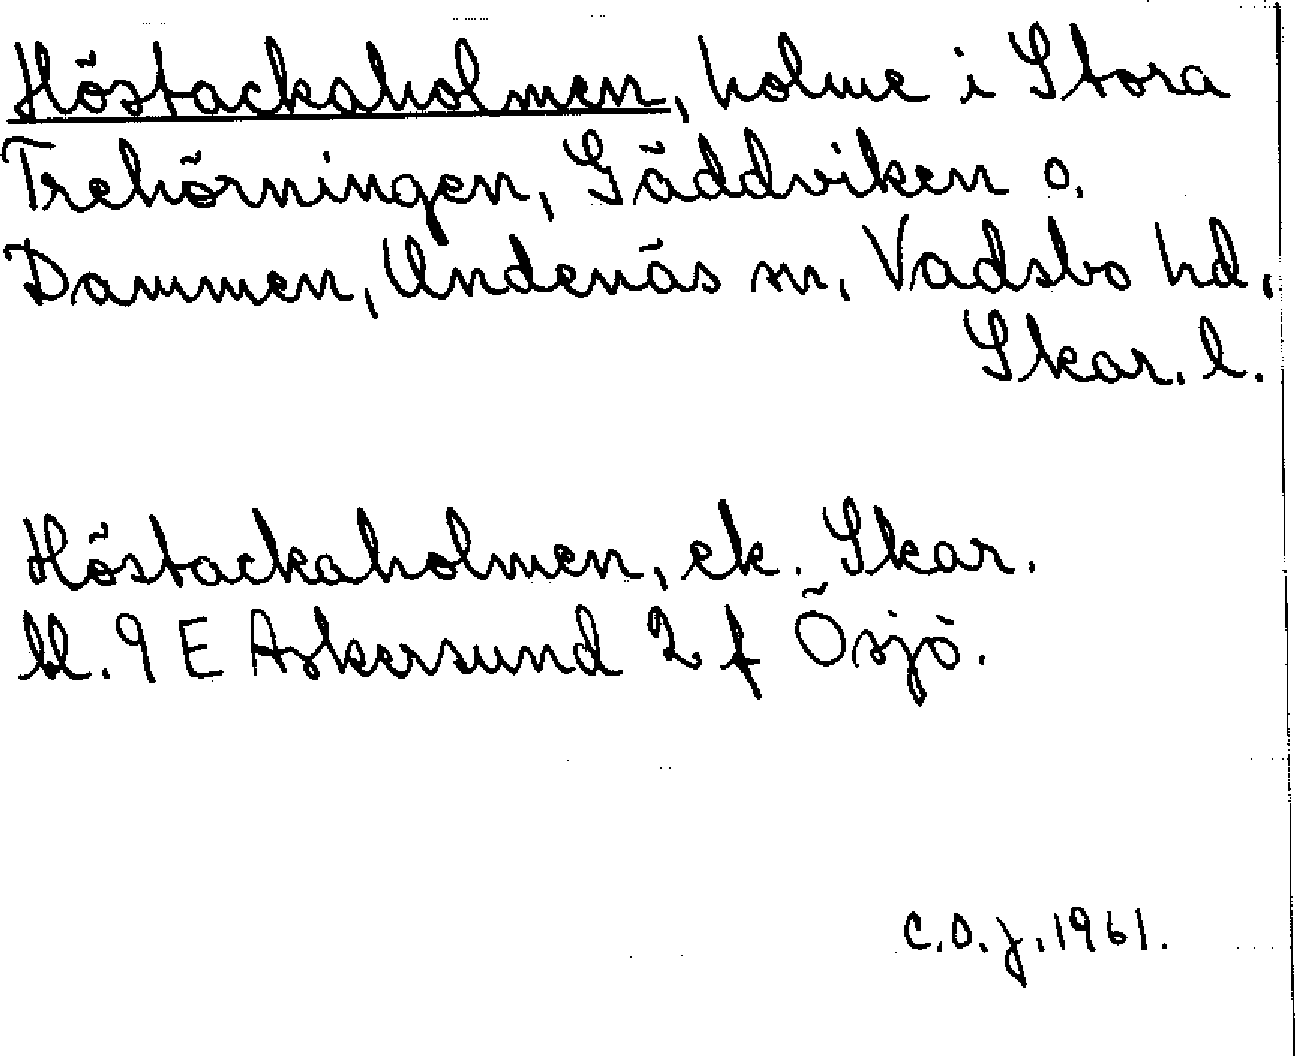 Höstackaholmen, holme i Stora
Trehörningen, Gäddviken o.
Dammen, Undenäs sn, Vadsbo hd,
Skar. l.
Höstackaholmen, ek. Skar.
bl. 9 E Askersund 2 f Ösjö.
C.O.J. 1961.